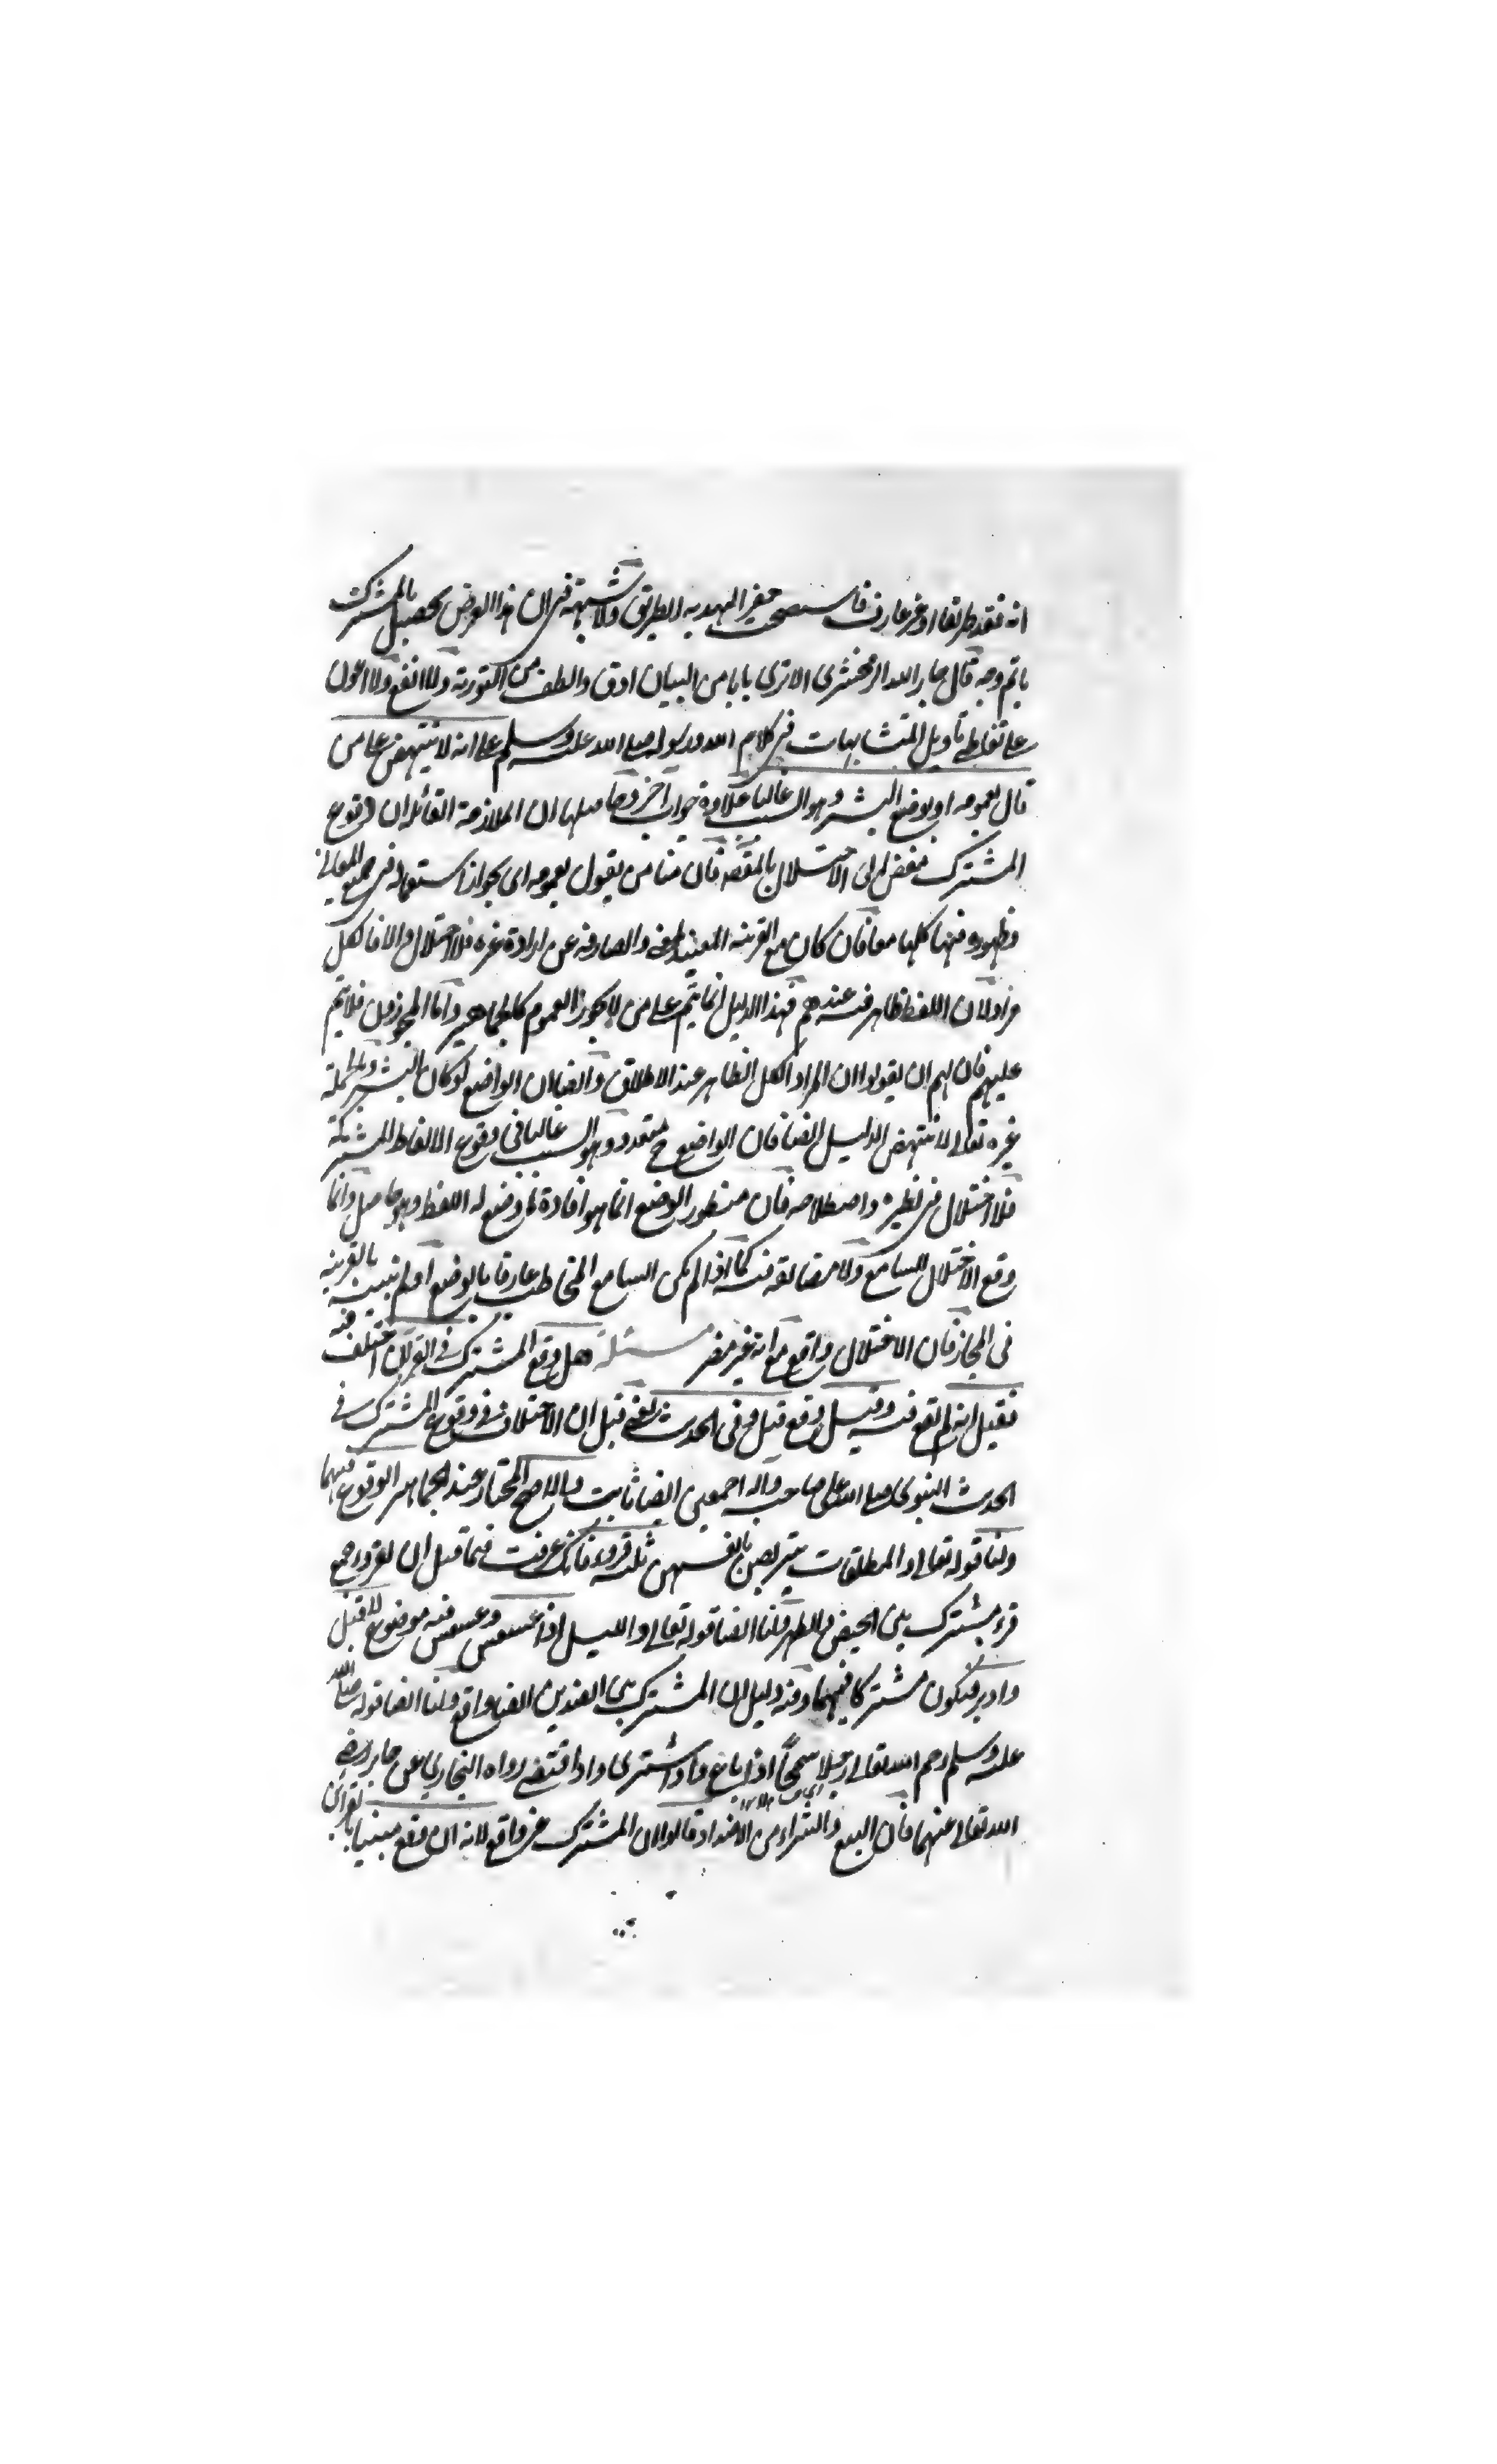 انه فقد طريقا او غير عارف فاستصحب خفيرا ليهديه الطريق ولا شبهة في ان هذا الغرض يحصل بالمشترك
باتم وجه قال جار الله الزمخشري لا ترى بابا من البيان ادق والطف من التورية ولا انفع ولا اعون
على تعاطي تاويل المتشابهات في كلام الله ورسوله صلى الله عليه وسلم على انه لا ينتهض على من
قال بعمومه او بوضع البشر وهو السبب غالبا علاوة جواب آخر وحاصلها ان الملازمة القائلة ان وقوع
المشترك مفض الى الاختلال بالمقصد فان منا من يقول بعمومه اي بجواز استعماله في جميع المعاني
وظهوره فيها كلها معا فان كان مع القرينة المعينة والصارفة عن ارادة غيره فلا اختلال والا فالكل
مراد لان اللفظ ظاهر فيه عندهم فهذا الدليل انما يتم على من لا يجوز العموم كالجماهير واما المجوزون فلا يتم
عليهم فان لهم ان يقولوا ان المراد الكل الظاهر عند الاطلاق وايضا ان الواضع لو كان البشر وبالجملة
غيره تعالى لا ينتهض الدليل ايضا فان الواضع ح متعدد وهو السبب غالبا في وقوع الالفاظ المشتركة
فلا اختلال في نظره واصطلاحه فان منظور الوضع انما هو افادة ما وضع له اللفظ وهو حاصل وانما
وقع الاختلال للسامع ولا مضايقة فيه كما اذا لم يكن السامع المخاطب عارفا بالوضع او لم يثبت بالقرينة
في المجاز فان الاختلال واقع مع انه غير مضر مسئلة هل وقع المشترك في القرآن اختلف فيه
فقيل انه لم يقع فيه وقيل وقع قيل وفي الحديث يعني قيل ان الاختلاف في وقوع المشترك في
الحديث النبوي صلى الله على صاحبه واله اجمعين ايضا ثابت والاصح المختار عند الجماهير الوقوع فيهما
ولنا قوله تعالى والمطلقات يتربصن بانفسهن ثلثة قروء فانك عرفت فيما قبل ان القروء جمع
قرء مشترك بين الحيض والطهر ولنا ايضا قوله تعالى والليل اذا عسعس وعسعس فيه موضوع لاقبل
وادبر فيكون مشتركا فيهما وفيه دليل ان المشترك بين الضدين ايضا واقع ولنا ايضا قوله صلى الله
عليه وسلم رحم الله تعالى رجلا سمحا اذا باع واذا اشترى واذا اقتضى رواه البخاري عن جابر رضي
الله تعالى عنهما فان البيع والشراء من الاضداد قالوا ان المشترك غير واقع لانه ان وقع مبينا بالقرائن